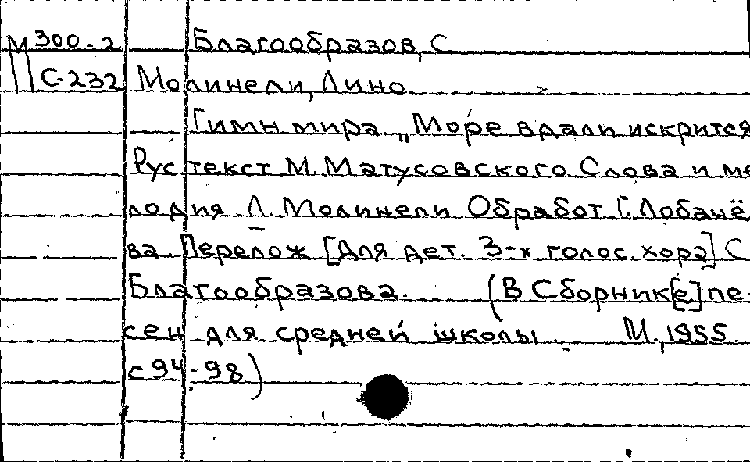 М 300-2 Благообразов, С
С-232 Молинели, Лино
Гимн мира „Море вдали искрится
Рус текст М. Матусовского. Слова и ме
лодия Л. Молинели Обработ. Г. Лобачё
ва Перелож [Для дет. 3-х голос. хора] С
Благообразова. (В Сборник[е] пе
сен для средней школы. М., 1955
с 94-98)